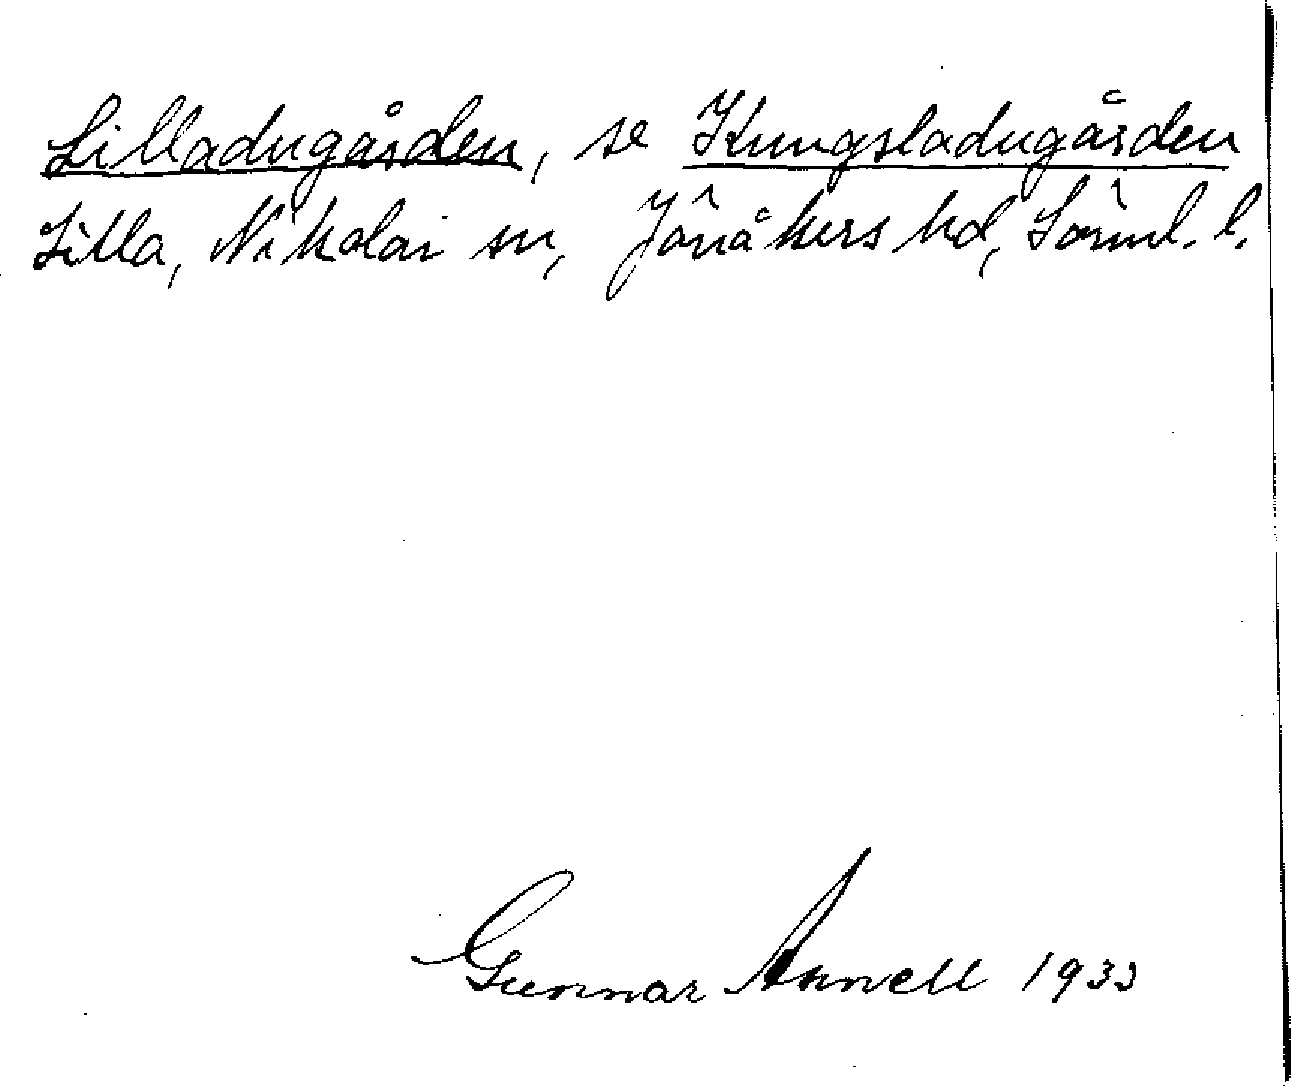 Lilladugården, se Kungsladugården
Lilla, Nikolai sn, Jönåkers hd, Sörml. l.
Gunnar Annell 1933